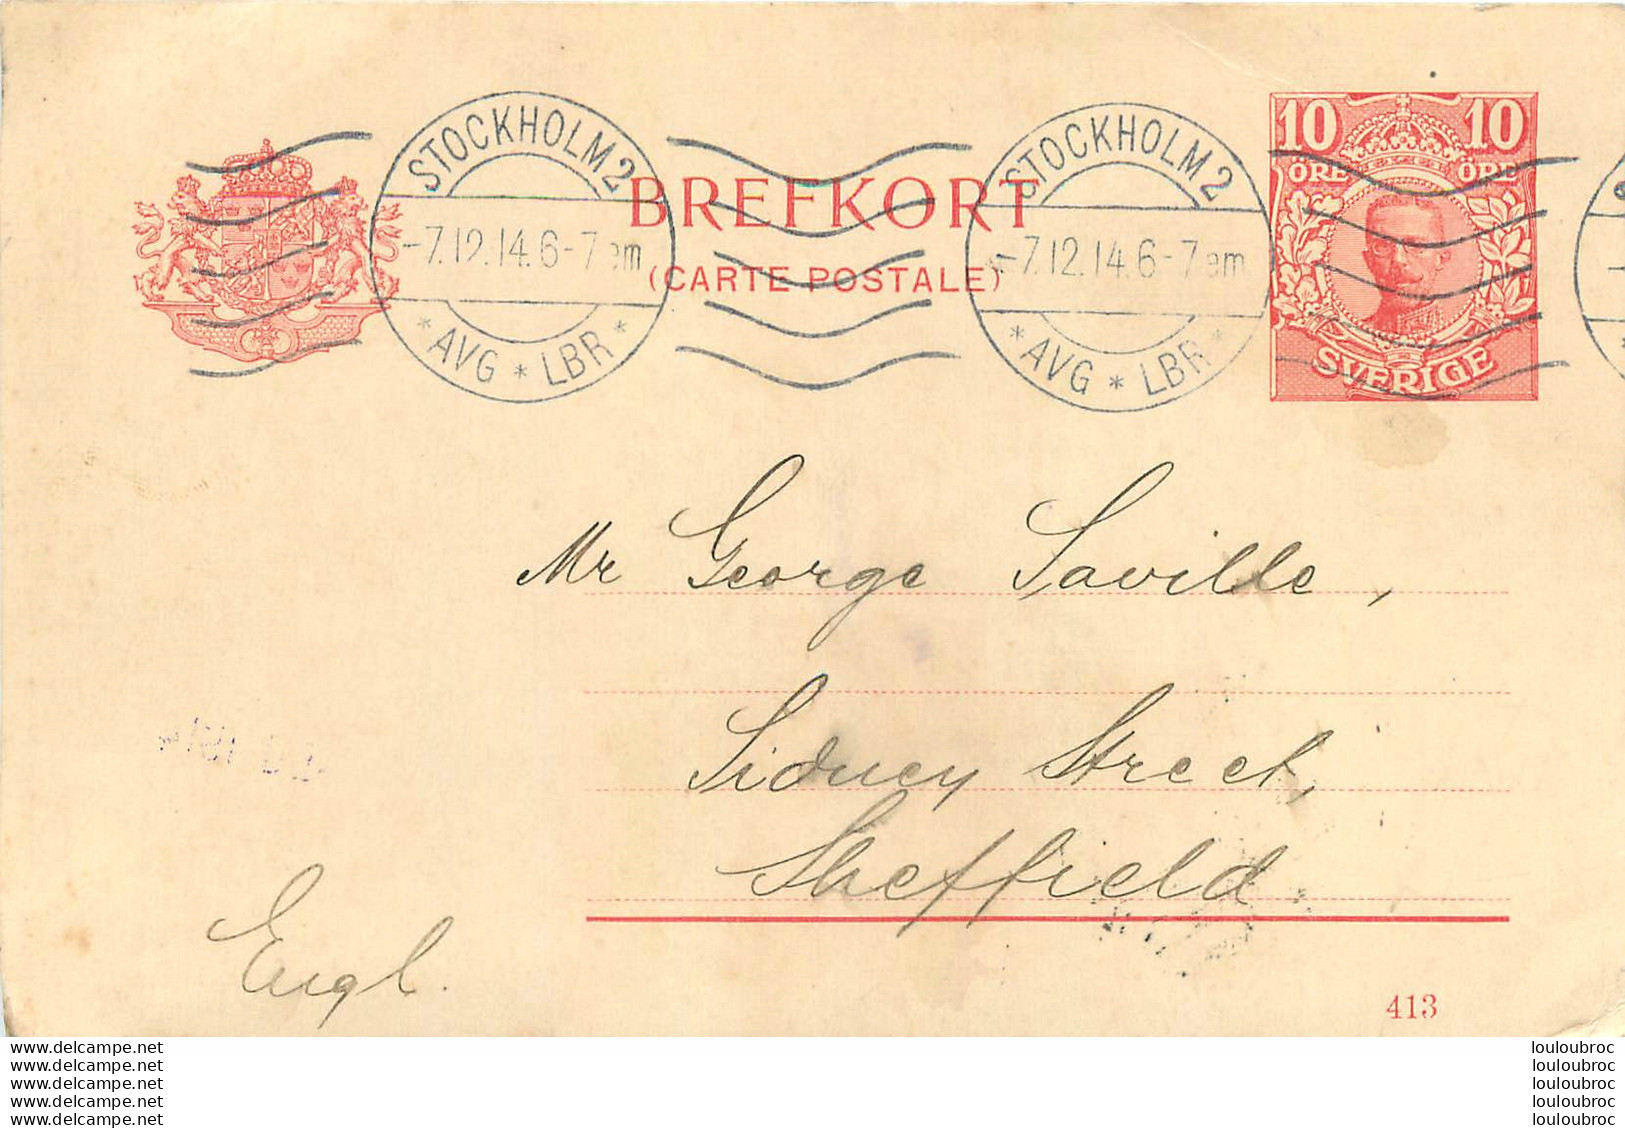 STOCKHOLM 2
-7.12.14.6-7 em
* AVG * LBR *
STOCKHOLM 2
-7.12.14.6-7 em
* AVG * LBR *
BREFKORT
(CARTE POSTALE)
10 10
ÖRE ÖRE
SVERIGE
Mr George Saville,
Sidney Street,
Sheffield
Engl.
413
www.delcampe.net
www.delcampe.net
www.delcampe.net
www.delcampe.net
www.delcampe.net
louloubroc
louloubroc
louloubroc
louloubroc
louloubroc